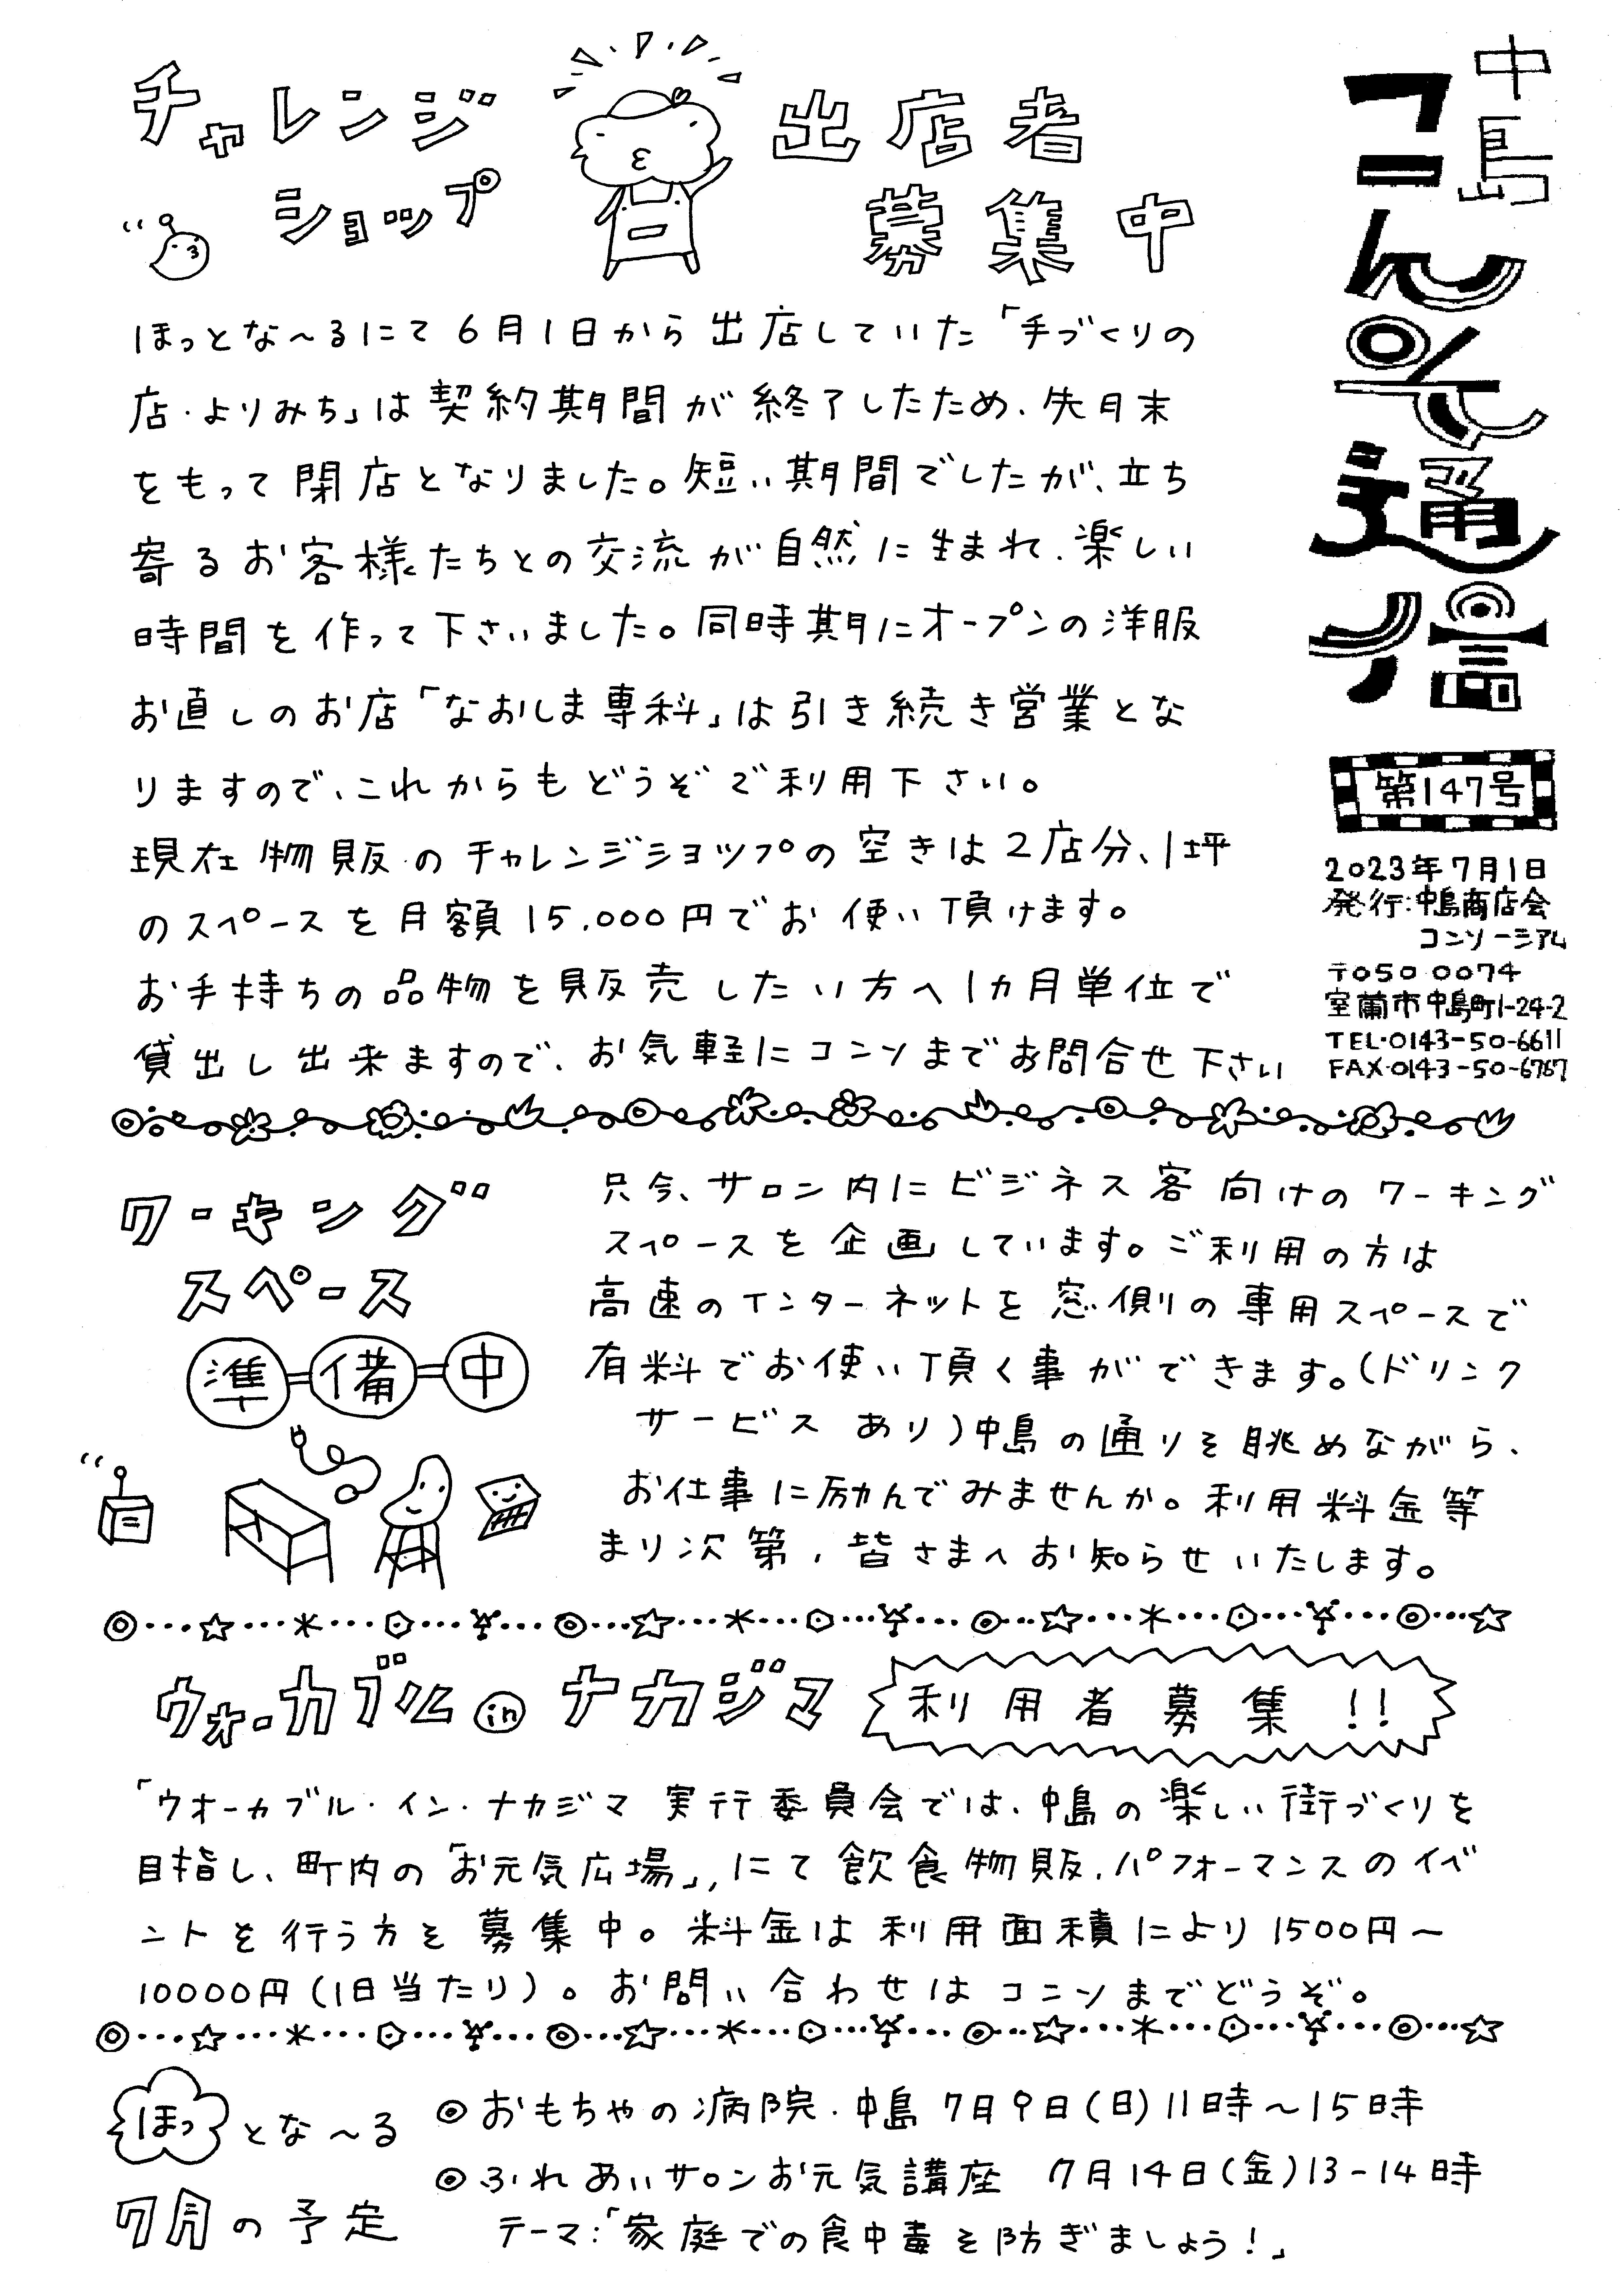 中島
コニんそ通信
第147号
2023年7月1日
発行:中島商店会
コンソーシアム
〒050 0074
室蘭市中島町1-24-2
TEL・0143-50-6611
FAX・0143-50-6767
チャレンジ
ショップ
出店者
募集中
ほっとな～るにて6月1日から出店していた「手づくりの
店・よりみち」は契約期間が終了したため、先月末
をもって閉店となりました。短い期間でしたが、立ち
寄るお客様たちとの交流が自然に生まれ、楽しい
時間を作って下さいました。同時期にオープンの洋服
お直しのお店「なおしま専科」は引き続き営業とな
りますので、これからもどうぞご利用下さい。
現在物販のチャレンジショップの空きは2店分、1坪
のスペースを月額15,000円でお使い頂けます。
お手持ちの品物を販売したい方へ1カ月単位で
貸出し出来ますので、お気軽にコニソまでお問合せ下さい
ワーキング
スペース
準=備=中
只今、サロン内にビジネス客向けのワーキング
スペースを企画しています。ご利用の方は
高速のインターネットを窓側の専用スペースで
有料でお使い頂く事ができます。(ドリンク
サービスあり)中島の通りを眺めながら、
お仕事に励んでみませんか。利用料金等
まり次第、皆さまへお知らせいたします。
ウォーカブル in ナカジマ
利用者募集!!
「ウオーカブル・イン・ナカジマ 実行委員会では、中島の楽しい街づくりを
目指し、町内の「お元気広場」,にて飲食物販、パフォーマンスのイベ
ントを行う方を募集中。料金は利用面積により1500円～
10000円(1日当たり)。お問い合わせはコニソまでどうぞ。
ほっとな～る
7月の予定
◎おもちゃの病院・中島 7月9日(日)11時～15時
◎ふれあいサロンお元気講座 7月14日(金)13-14時
テーマ:「家庭での食中毒を防ぎましょう!」